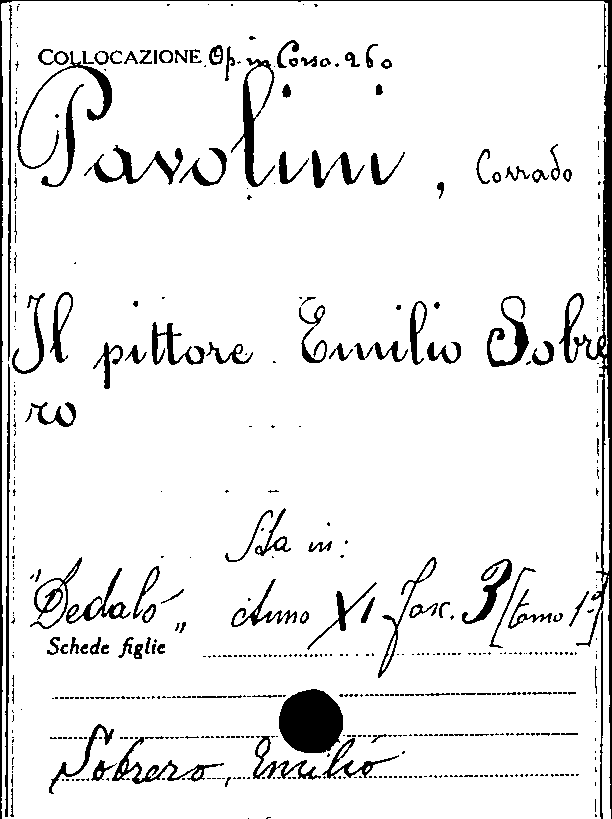 COLLOCAZIONE Op. in Corso. 260
Pavolini, Corrado
Il pittore Emilio Sobre
ro
Sta in:
"Dedalo„ Anno XI fasc. 3 [tomo 1º]
Schede figlie
Sobrero, Emilio